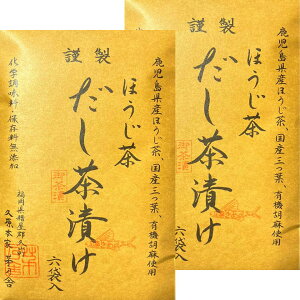 謹製
鹿児島県産ほうじ茶、国産三つ葉、有機胡麻使用
ほうじ茶
だし茶漬け
御茶漬
六袋入
化学調味料・保存料無添加
福岡県糟屋郡久山
久原本家 茅乃舎
謹製
鹿児島県産ほうじ茶、国産三つ葉、有機胡麻使用
ほうじ茶
だし茶漬け
御茶漬
六袋入